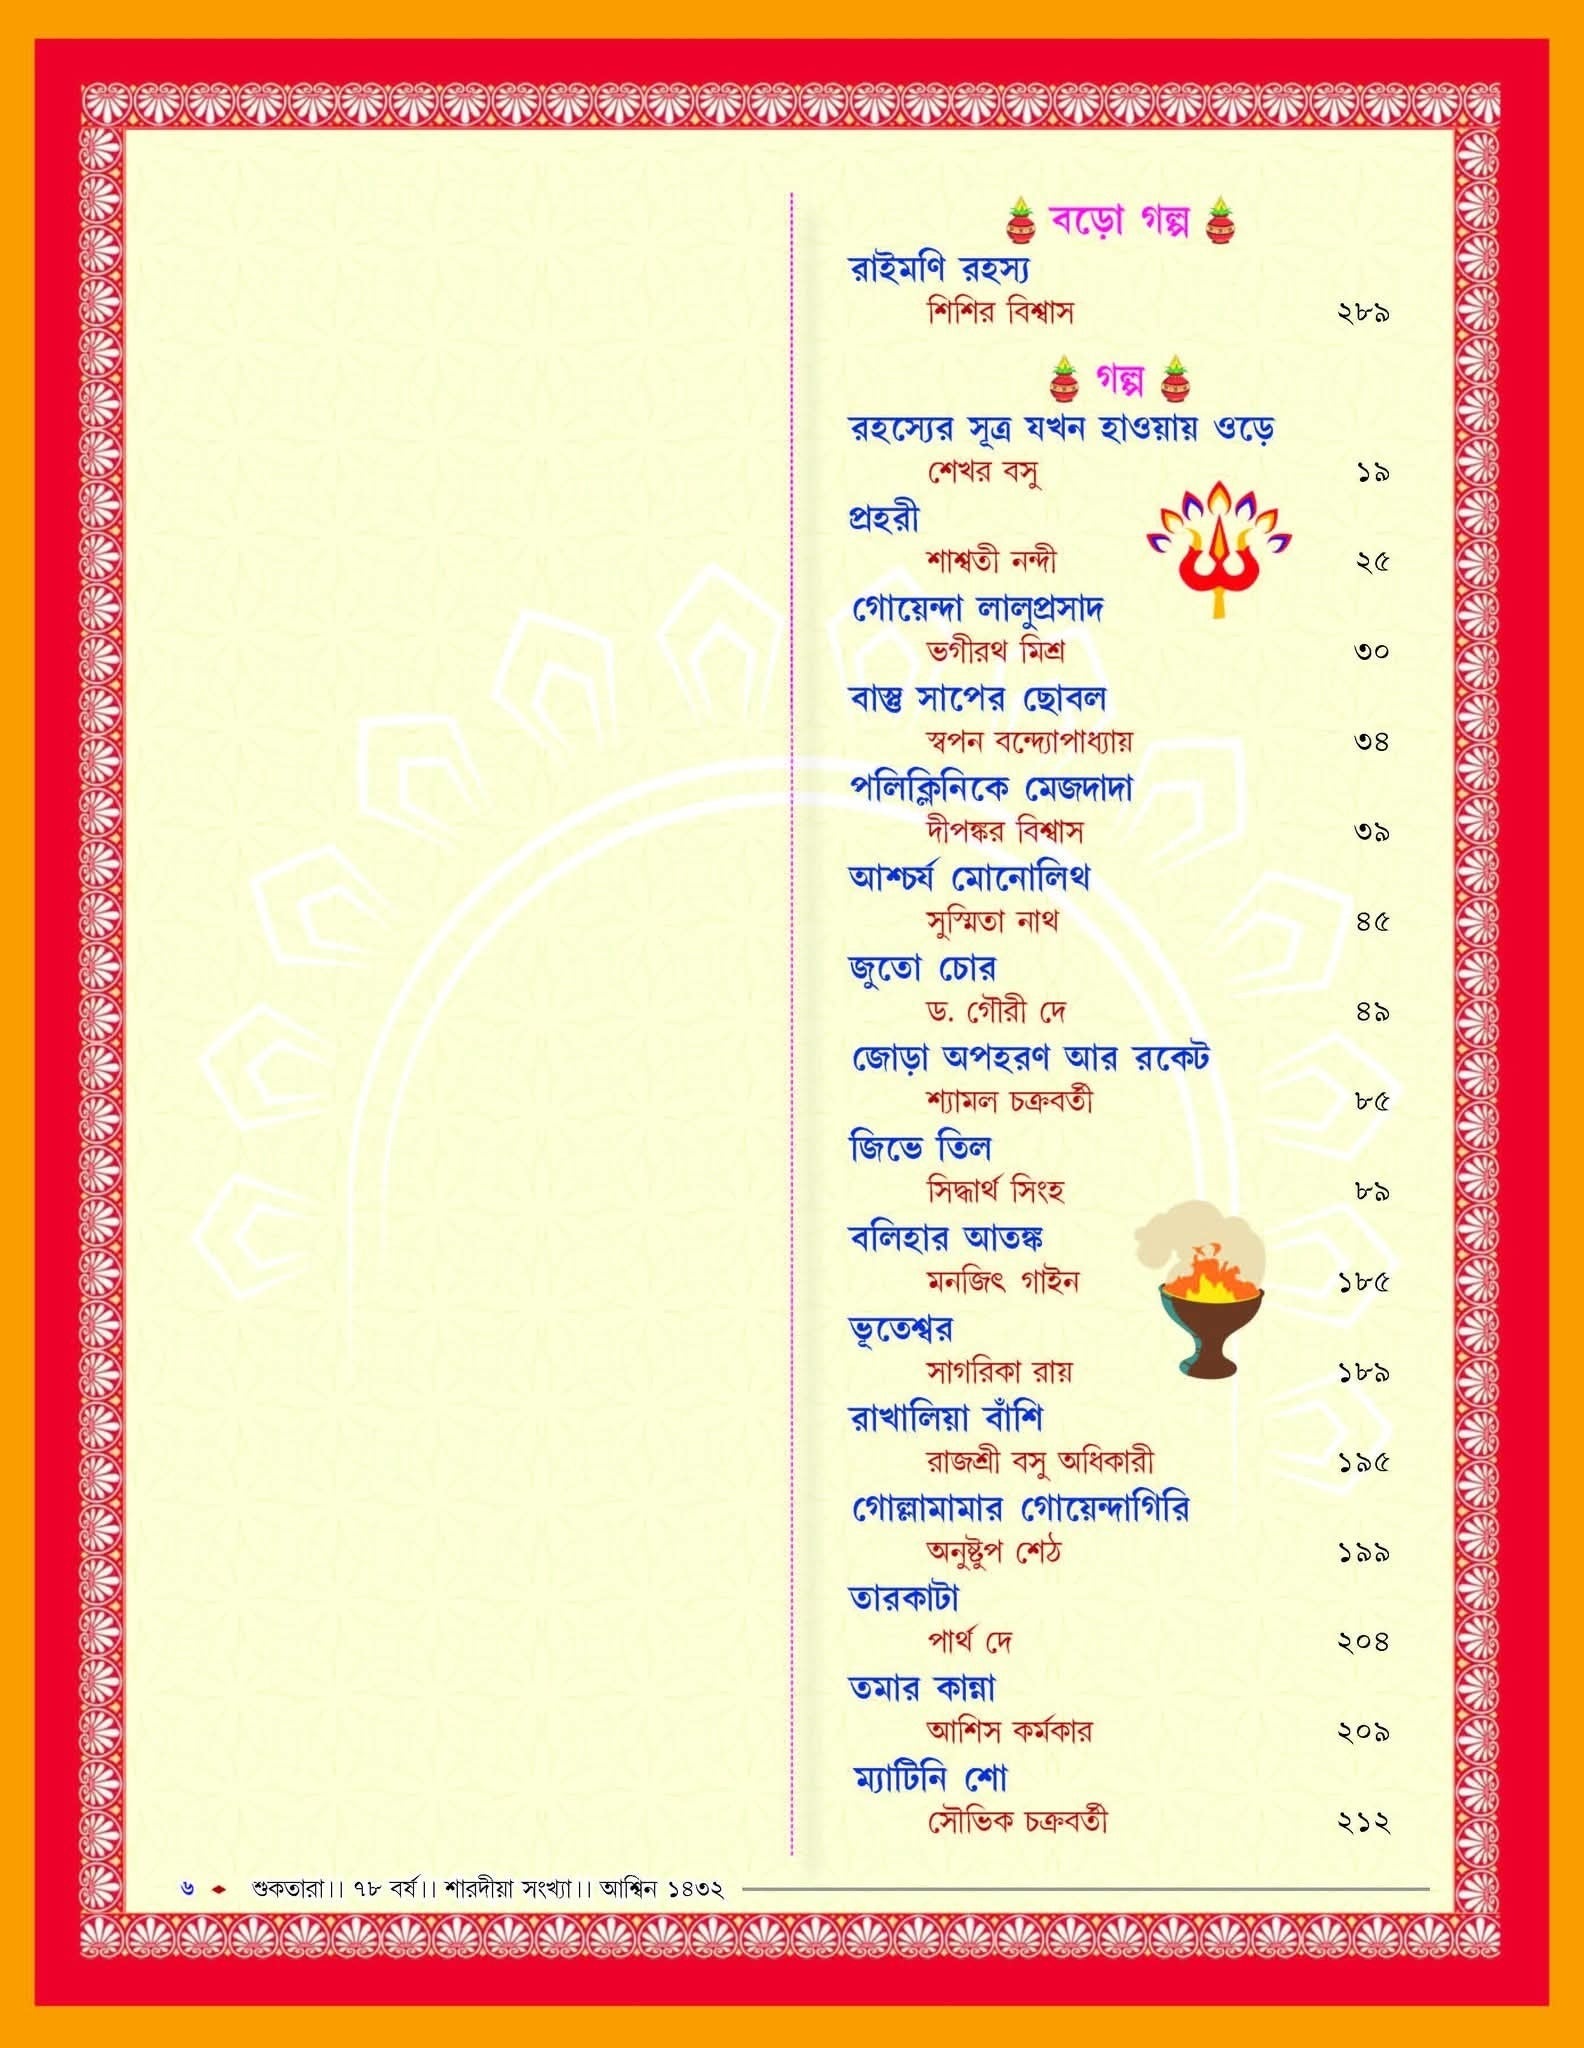 বড়ো গল্প
রাইমণি রহস্য
শিশির বিশ্বাস ২৮৯
গল্প
রহস্যের সূত্র যখন হাওয়ায় ওড়ে
শেখর বসু ১৯
প্রহরী
শাশ্বতী নন্দী ২৫
গোয়েন্দা লালুপ্রসাদ
ভগীরথ মিশ্র ৩০
বাস্তু সাপের ছোবল
স্বপন বন্দ্যোপাধ্যায় ৩৪
পলিক্লিনিকে মেজদাদা
দীপঙ্কর বিশ্বাস ৩৯
আশ্চর্য মোনোলিথ
সুস্মিতা নাথ ৪৫
জুতো চোর
ড. গৌরী দে ৪৯
জোড়া অপহরণ আর রকেট
শ্যামল চক্রবর্তী ৮৫
জিভে তিল
সিদ্ধার্থ সিংহ ৮৯
বলিহার আতঙ্ক
মনজিৎ গাইন ১৮৫
ভূতেশ্বর
সাগরিকা রায় ১৮৯
রাখালিয়া বাঁশি
রাজশ্রী বসু অধিকারী ১৯৫
গোল্লামামার গোয়েন্দাগিরি
অনুষ্টুপ শেঠ ১৯৯
তারকাটা
পার্থ দে ২০৪
তমার কান্না
আশিস কর্মকার ২০৯
ম্যাটিনি শো
সৌভিক চক্রবর্তী ২১২
৬ ♦ শুকতারা।। ৭৮ বর্ষ।। শারদীয়া সংখ্যা।। আশ্বিন ১৪৩২